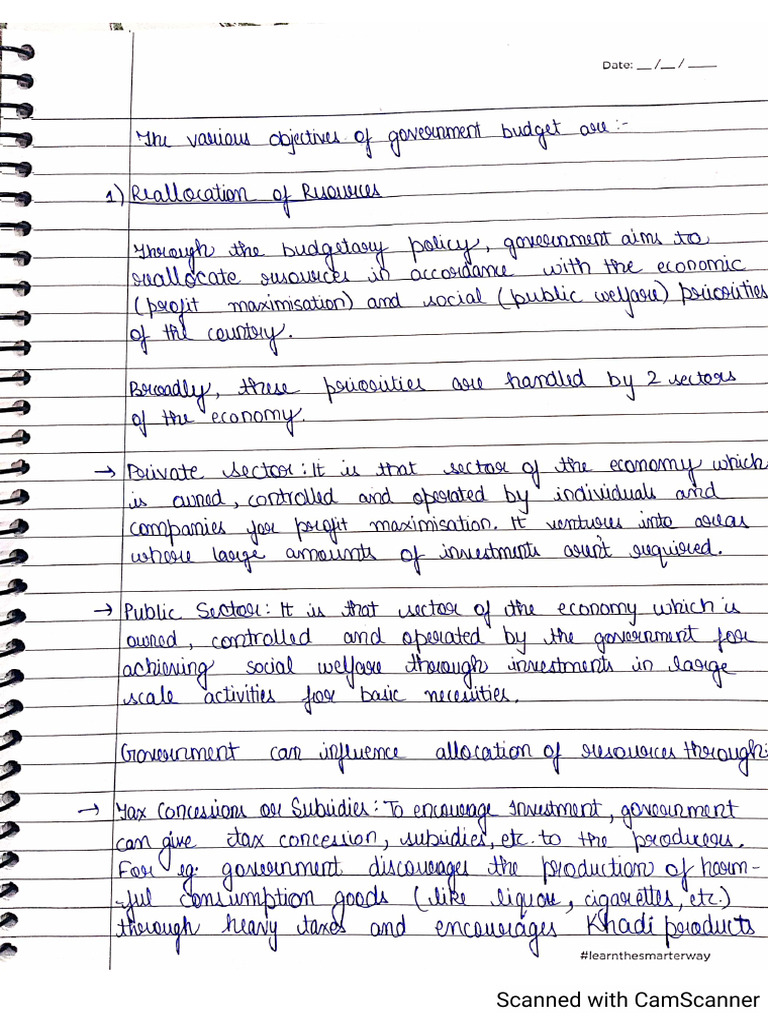 Date: __/__/____
The various objectives of government budget are:-
1) Reallocation of Resources
Through the budgetary policy, government aims to
reallocate resources in accordance with the economic
(profit maximisation) and social (public welfare) priorities
of the country.
Broadly, these priorities are handled by 2 sectors
of the economy.
→ Private Sector: It is that sector of the economy which
is owned, controlled and operated by individuals and
companies for profit maximisation. It ventures into areas
where large amounts of investments aren't required.
→ Public Sector: It is that sector of the economy which is
owned, controlled and operated by the government for
achieving social welfare through investments in large
scale activities for basic necessities.
Government can influence allocation of resources through:
→ Tax Concessions or Subsidies: To encourage Investment, government
can give tax concession, subsidies, etc. to the producers.
For eg: government discourages the production of harm-
-ful consumption goods (like liquor, cigarettes, etc.)
through heavy taxes and encourages Khadi products
#learnthesmarterway
Scanned with CamScanner